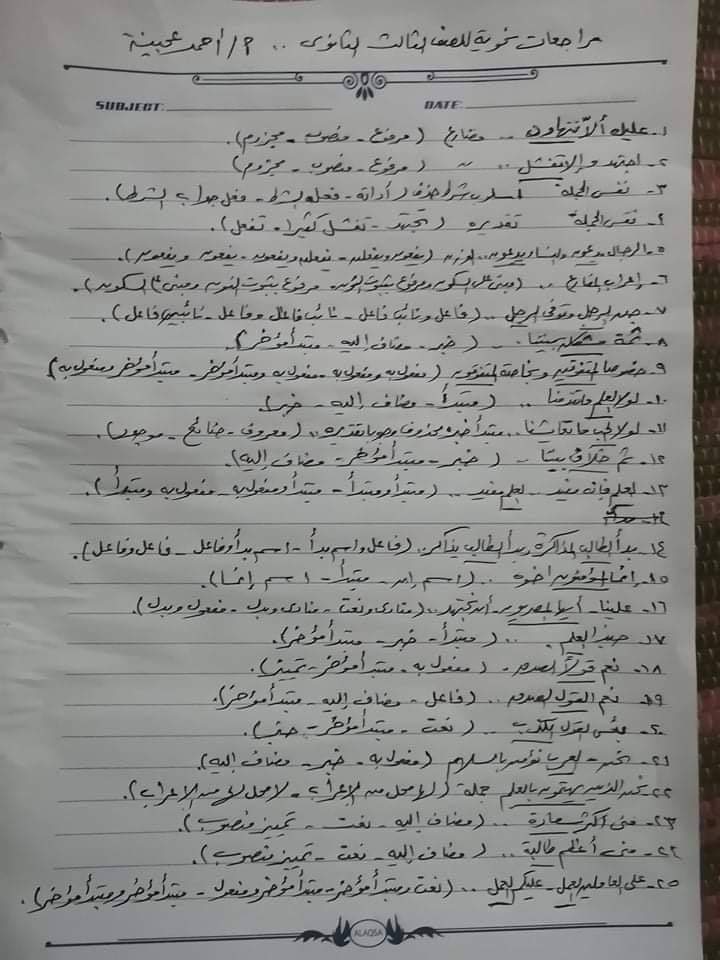 مراجعات نحوية للصف الثالث الثانوى .. أ/أحمد عجيبة
SUBJECT: DATE:
١- عليك ألا تتهاون .. مضارع (مرفوع - منصوب - مجزوم).
٢- اجتهد وإلا تفشل .. " (مرفوع - منصوب - مجزوم)
٣- نفس الجملة أسلوب شرط حذف (أداته - فعل الشرط - فعل جواب الشرط).
٤- نفس الجملة تقديره (تجتهد - تفشل كثيرا - تفعل).
٥- الرجال يدعون والنساء يدعون .. الوزن (يفعون ويفعلن - يفعلن ويفعون - يفعون ويفعون).
٦- إعراب المضارع .. (مبنى على السكون ومرفوع بثبوت النون - مرفوع بثبوت النون ومبنى على السكون).
٧- الرجل وتوفى الرجل .. (فاعل ونائب فاعل - نائب فاعل وفاعل - نائبى فاعل).
٨- ثمة مشكلة بيننا .. (خبر - مضاف إليه - مبتدأ مؤخر).
٩- خصوصا المتفوقين وبخاصة المتفوقون (مفعول به ومفعول به - مفعول به ومبتدأ مؤخر - مبتدأ مؤخر ومفعول به)
١٠- لولا العلم ما تقدمنا .. (مبتدأ - مضاف إليه - خبر).
١١- لولا الحب ما تعايشنا .. مبتدأ خبره محذوف وجوبا تقديره .. (معروف - ضائع - موجود).
١٢- ثم خلاف بيننا .. (خبر - مبتدأ مؤخر - مضاف إليه).
١٣- العلم فإنه مفيد .. العلم مفيد .. (مبتدأ ومبتدأ - مبتدأ ومفعول به - مفعول به ومبتدأ).
١٤- بدأ الطالب المذاكرة، بدأ الطالب يذاكر .. (فاعل واسم بدأ - اسم بدأ وفاعل - فاعل وفاعل).
١٥- إنما المؤمنون إخوة .. (اسم إن - مبتدأ - اسم إنما).
١٦- علينا - أيها المصريون - أن نجتهد .. (منادى ونعت - منادى وبدل - مفعول وبدل).
١٧- العلم .. (مبتدأ - خبر - مبتدأ مؤخر).
١٨- نعم قولا الصدق - (مفعول به - مبتدأ مؤخر - تمييز).
١٩- نعم القول الصدق .. (فاعل - مضاف إليه - مبتدأ مؤخر).
٢٠- بئس القول الكذب .. (نعت - مبتدأ مؤخر - خبر).
٢١- نحن - العرب - نؤمن بالسلام (مفعول به - خبر - مضاف إليه).
٢٢- نحن الذين يهتمون بالعلم جملة (لها محل من الإعراب - لا محل لها من الإعراب).
٢٣- منى أكثر سعادة .. (مضاف إليه - نعت - تمييز منصوب).
٢٤- منى أعظم طالبة .. (مضاف إليه - نعت - تمييز منصوب).
٢٥- على العاملين العمل - عليكم العمل .. (نعت ومبتدأ مؤخر - مبتدأ مؤخر ومفعول - مبتدأ مؤخر ومبتدأ مؤخر).
ALAQSA